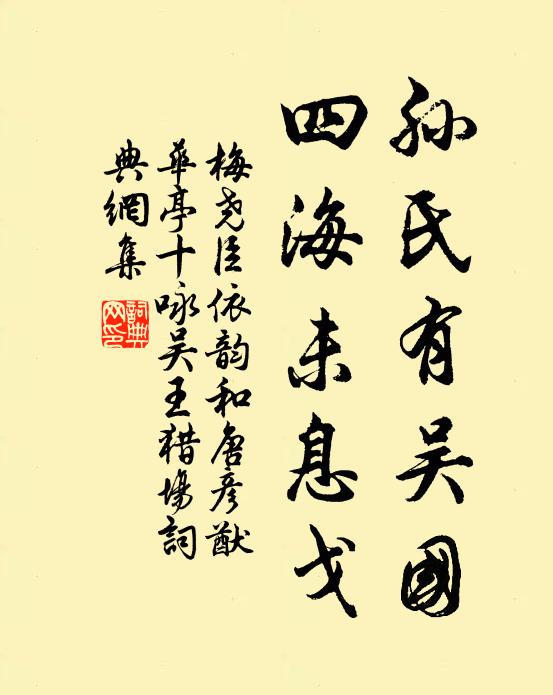 孙氏有吴國
四海未息戈
梅尧臣依韵和唐彦猷
华亭十咏吴王猎場詞
典網集
詞典网印